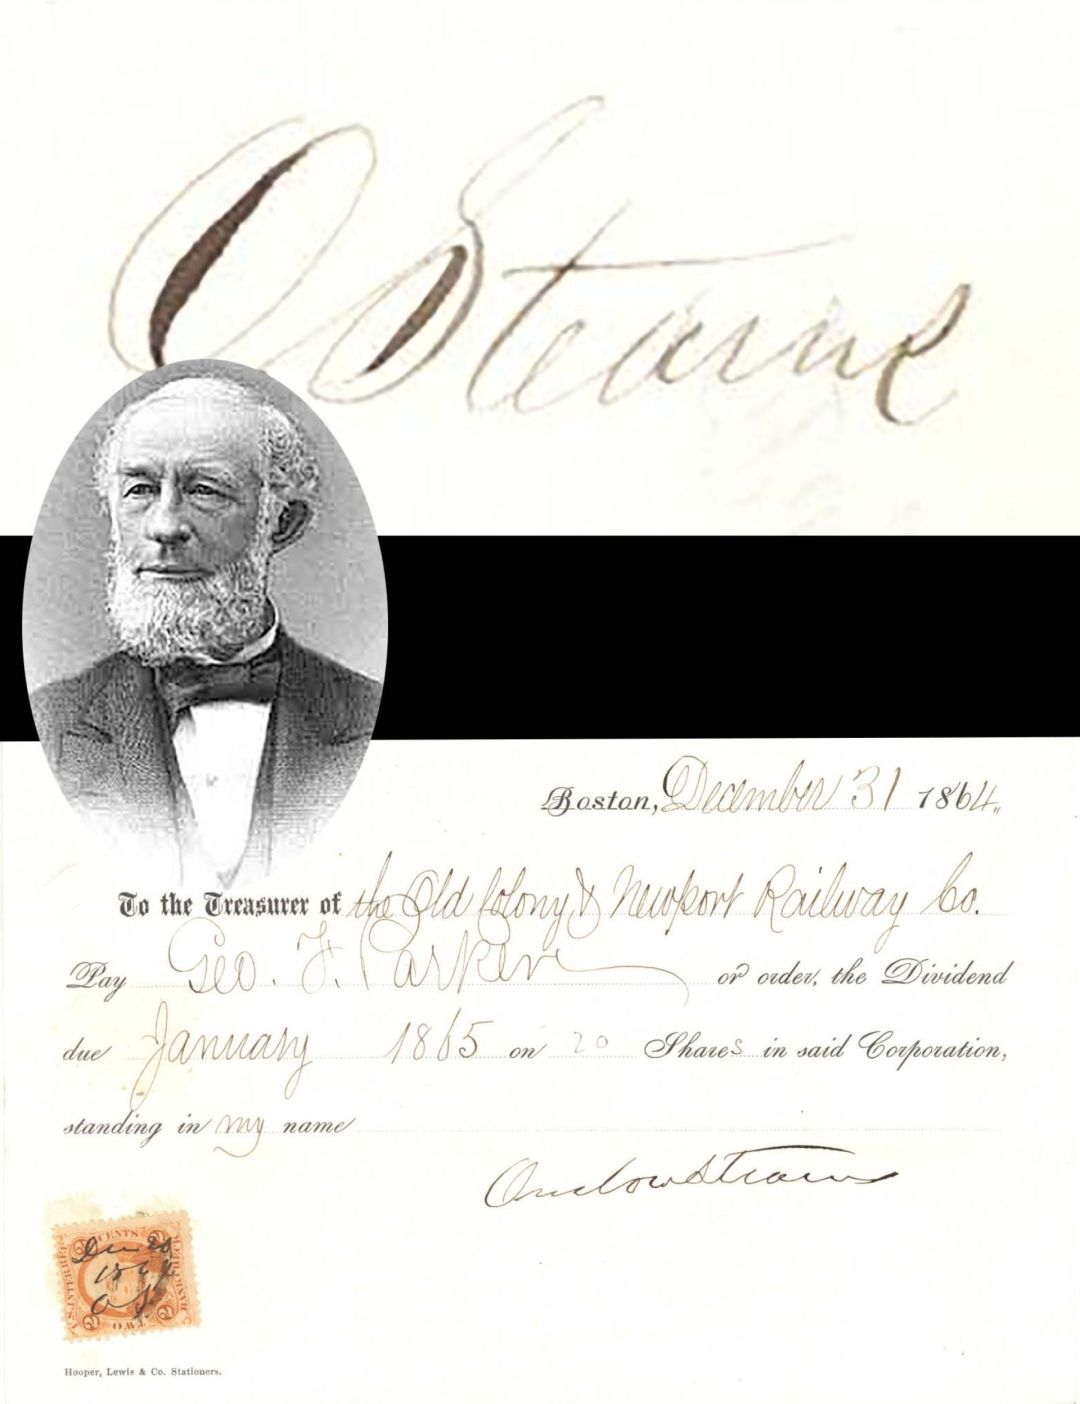 O Stearns
Boston, December 31 1864.
To the Treasurer of the Old Colony & Newport Railway Co.
Pay Geo. F. Parker or order, the Dividend
due January 1865 on 20 Shares in said Corporation,
standing in my name
Onslow Stearns
U.S. INTER. REV.
2 CENTS 2
Dec 20
1864
O.S.
2 TWO 2
Hooper, Lewis & Co. Stationers.